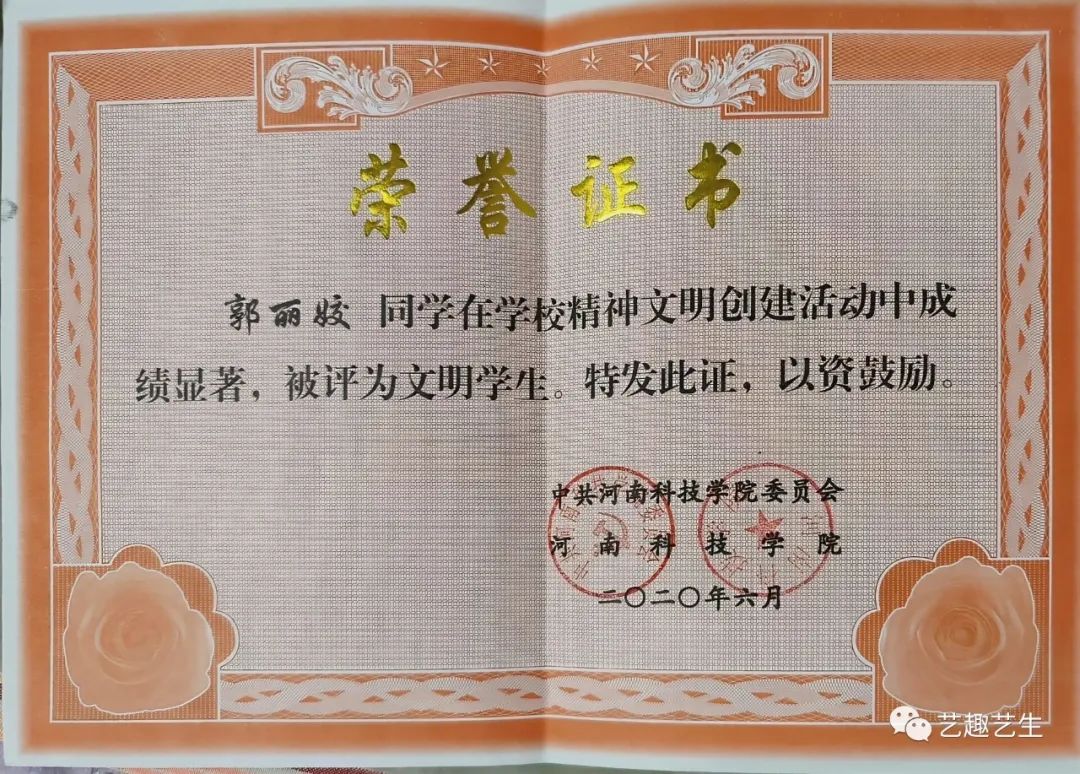 荣誉证书
郭丽姣 同学在学校精神文明创建活动中成
绩显著，被评为文明学生。特发此证，以资鼓励。
中共河南科技学院委员会
河南科技学院
二〇二〇年六月
艺趣艺生